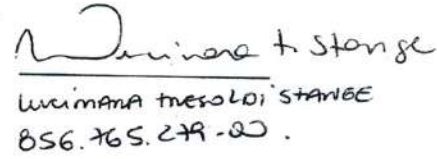 Lucimara t. Stange
LUCIMARA TRESOLDI STANGE
856.765.279-00.